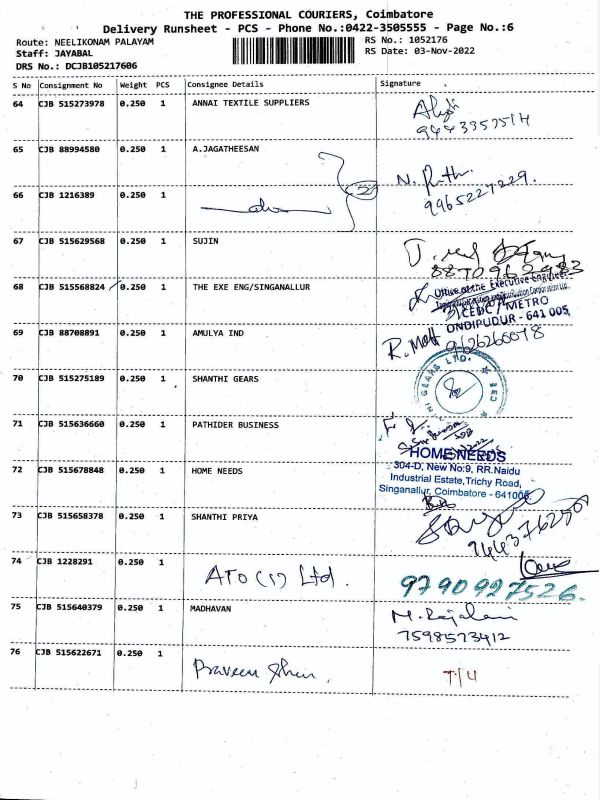 THE PROFESSIONAL COURIERS, Coimbatore
Delivery Runsheet - PCS - Phone No.:0422-3505555 - Page No.:6
Route: NEELIKONAM PALAYAM
RS No.: 1052176
Staff: JAYABAL
RS Date: 03-Nov-2022
DRS No.: DCJB105217606
S No Consignment No Weight PCS Consignee Details Signature
64 CJB 515273978 0.250 1 ANNAI TEXTILE SUPPLIERS
9443357514
65 CJB 88994580 0.250 1 A.JAGATHEESAN
N. Ruth.
66 CJB 1216389 0.250 1 2 9965227229.
67 CJB 515629568 0.250 1 SUJIN
8870962983
68 CJB 515568824 THE EXE ENG/SINGANALLUR
0.250 1
Office of the Executive Engineer
CEDC / METRO
ONDIPUDUR - 641 005
69 CJB 88708891 0.250 1 AMULYA IND
9626260078
70 CJB 515275189 0.250 1 SHANTHI GEARS
GEARS LTD.
71 CJB 515636660 0.250 1 PATHIDER BUSINESS
HOME NEEDS
304-D, New No:9, RR.Naidu
Industrial Estate,Trichy Road,
Singanallur, Coimbatore - 641005
72 CJB 515678848 0.250 1 HOME NEEDS
73 CJB 515658378 0.250 1 SHANTHI PRIYA
74 CJB 1228291 0.250 1 ATO (I) Ltd. 9790927526.
75 CJB 515640379 0.250 1 MADHAVAN
M. Rajalani
7598573412
76 CJB 515622671 0.250 1
Praveen T/4